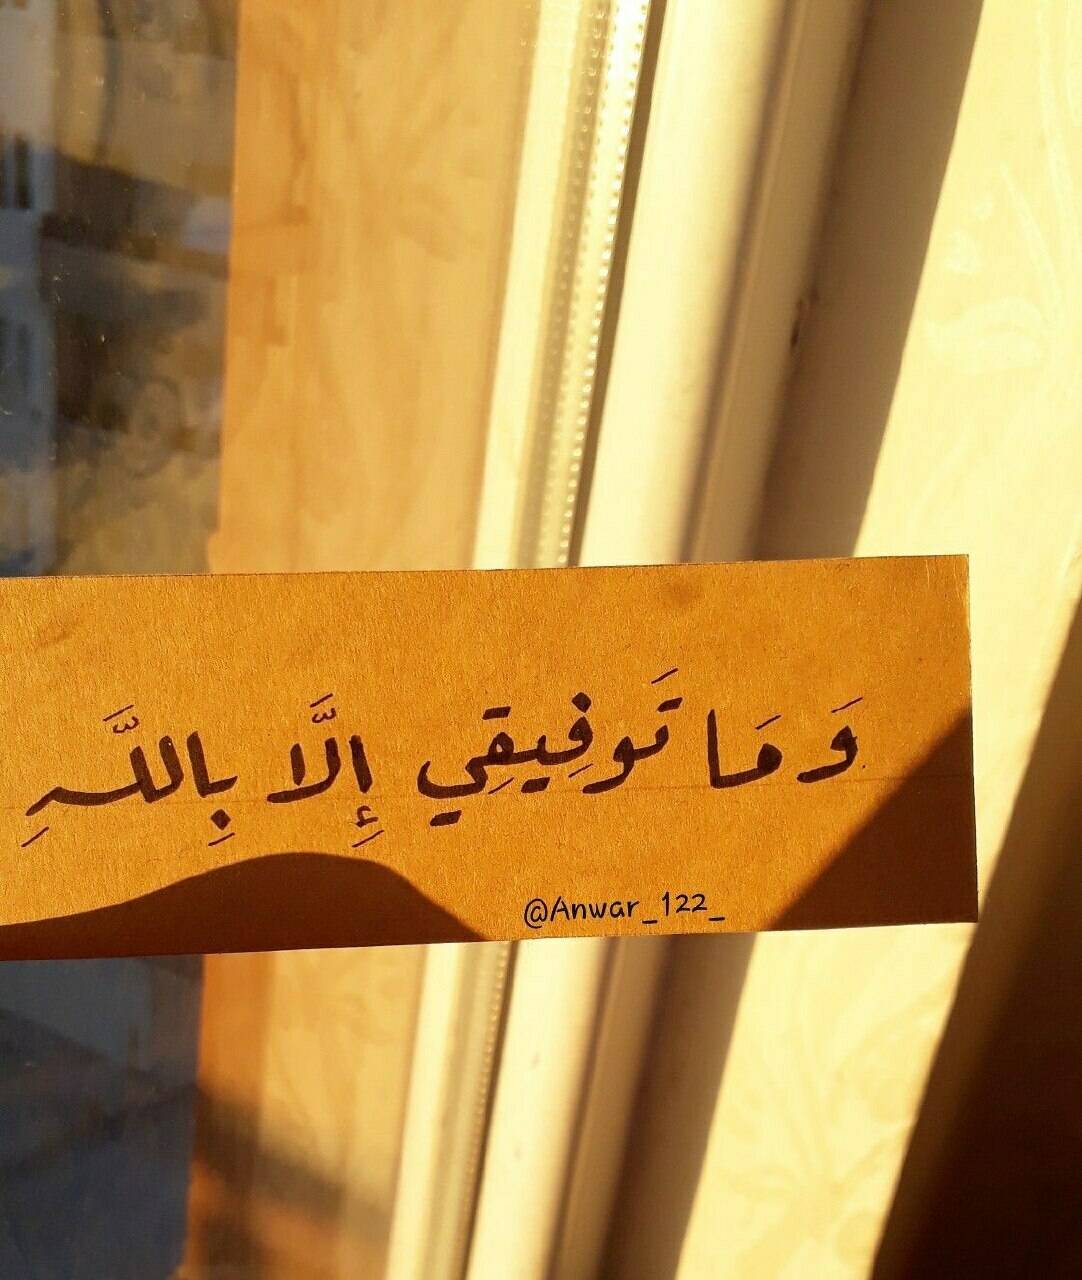 وَمَا تَوفِيقِي إِلَّا بِاللَّهِ
@Anwar_122_